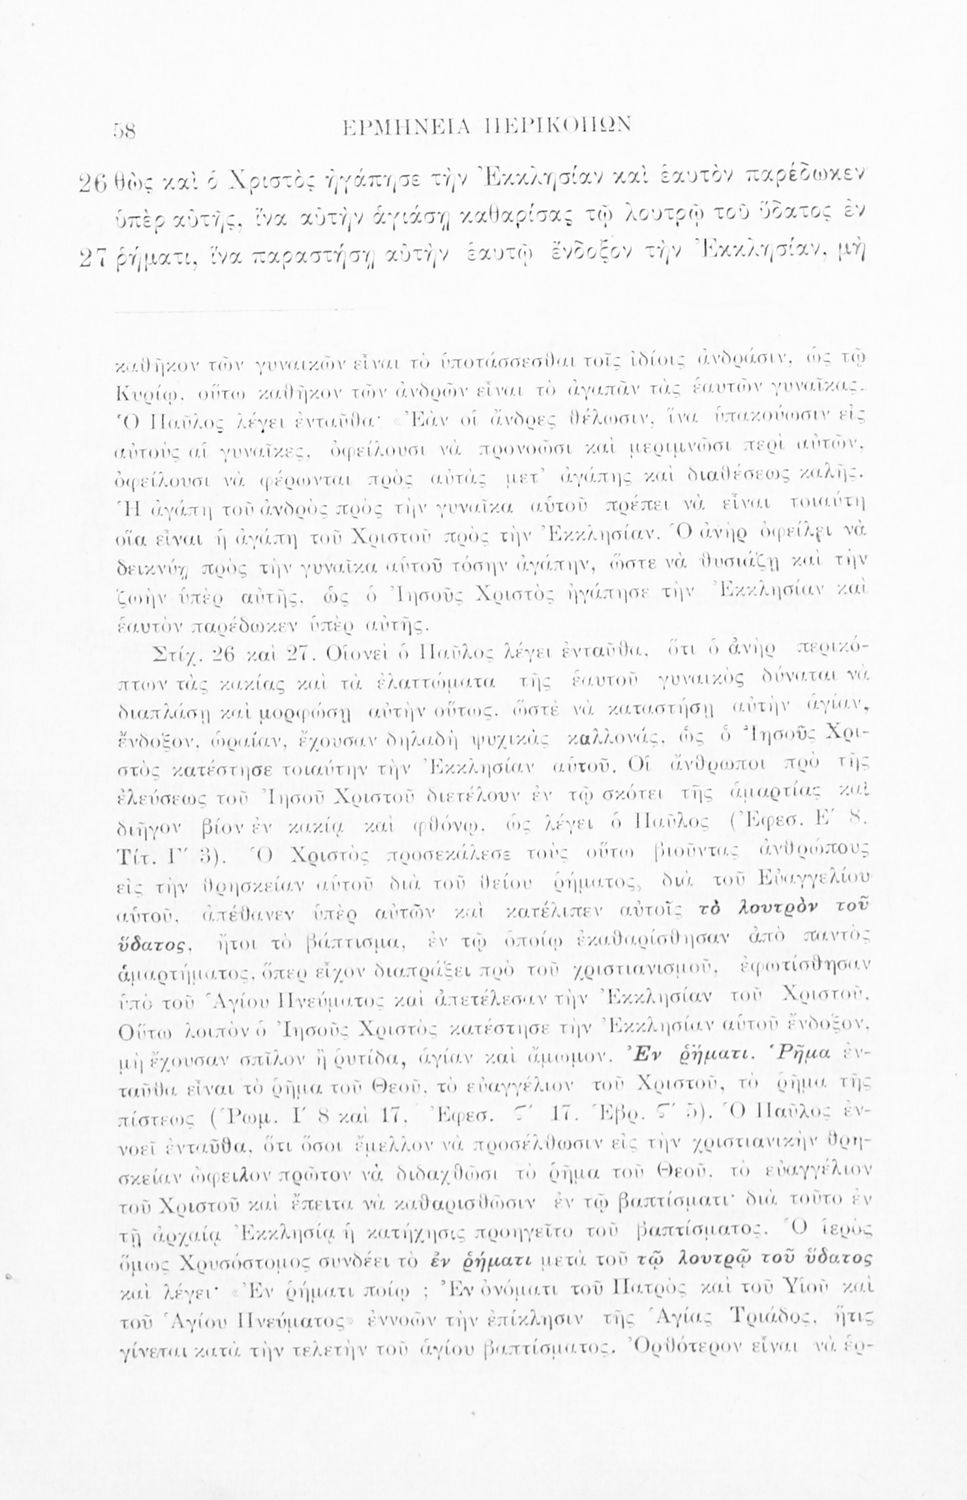 58 ΕΡΜΗΝΕΙΑ ΠΕΡΙΚΟΠΩΝ
26 θὼς καὶ ὁ Χριστὸς ἠγάπησε τὴν Ἐκκλησίαν καὶ ἑαυτὸν παρέδωκεν
ὑπὲρ αὐτῆς, ἵνα αὐτὴν ἁγιάσῃ καθαρίσας τῷ λουτρῷ τοῦ ὕδατος ἐν
27 ῥήματι, ἵνα παραστήσῃ αὐτὴν ἑαυτῷ ἔνδοξον τὴν Ἐκκλησίαν, μὴ
καθῆκον τῶν γυναικῶν εἶναι τὸ ὑποτάσσεσθαι τοῖς ἰδίοις ἀνδράσιν, ὡς τῷ
Κυρίῳ, οὕτω καθῆκον τῶν ἀνδρῶν εἶναι τὸ ἀγαπᾶν τὰς ἑαυτῶν γυναῖκας.
Ὁ Παῦλος λέγει ἐνταῦθα· «Ἐὰν οἱ ἄνδρες θέλωσιν, ἵνα ὑπακούωσιν εἰς
αὐτοὺς αἱ γυναῖκες, ὀφείλουσι νὰ προνοῶσι καὶ μεριμνῶσι περὶ αὐτῶν,
ὀφείλουσι νὰ φέρωνται πρὸς αὐτὰς μετ' ἀγάπης καὶ διαθέσεως καλῆς.
Ἡ ἀγάπη τοῦ ἀνδρὸς πρὸς τὴν γυναῖκα αὐτοῦ πρέπει νὰ εἶναι τοιαύτη
οἵα εἶναι ἡ ἀγάπη τοῦ Χριστοῦ πρὸς τὴν Ἐκκλησίαν. Ὁ ἀνὴρ ὀφείλει νὰ
δεικνύῃ πρὸς τὴν γυναῖκα αὐτοῦ τόσην ἀγάπην, ὥστε νὰ θυσιάζῃ καὶ τὴν
ζωὴν ὑπὲρ αὐτῆς, ὡς ὁ Ἰησοῦς Χριστὸς ἠγάπησε τὴν Ἐκκλησίαν καὶ
ἑαυτὸν παρέδωκεν ὑπὲρ αὐτῆς.
Στίχ. 26 καὶ 27. Οἱονεὶ ὁ Παῦλος λέγει ἐνταῦθα, ὅτι ὁ ἀνὴρ περικό-
πτων τὰς κακίας καὶ τὰ ἐλαττώματα τῆς ἑαυτοῦ γυναικὸς δύναται νὰ
διαπλάσῃ καὶ μορφώσῃ αὐτὴν οὕτως, ὥστε νὰ καταστήσῃ αὐτὴν ἁγίαν,
ἔνδοξον, ὡραίαν, ἔχουσαν δηλαδὴ ψυχικὰς καλλονάς, ὡς ὁ Ἰησοῦς Χρι-
στὸς κατέστησε τοιαύτην τὴν Ἐκκλησίαν αὐτοῦ. Οἱ ἄνθρωποι πρὸ τῆς
ἐλεύσεως τοῦ Ἰησοῦ Χριστοῦ διετέλουν ἐν τῷ σκότει τῆς ἁμαρτίας καὶ
διῆγον βίον ἐν κακίᾳ καὶ φθόνῳ, ὡς λέγει ὁ Παῦλος (Ἐφεσ. Ε' 8.
Τίτ. Γ' 3). Ὁ Χριστὸς προσεκάλεσε τοὺς οὕτω βιοῦντας ἀνθρώπους
εἰς τὴν θρησκείαν αὐτοῦ διὰ τοῦ θείου ῥήματος, διὰ τοῦ Εὐαγγελίου
αὐτοῦ, ἀπέθανεν ὑπὲρ αὐτῶν καὶ κατέλιπεν αὐτοῖς τὸ λουτρὸν τοῦ
ὕδατος, ἤτοι τὸ βάπτισμα, ἐν τῷ ὁποίῳ ἐκαθαρίσθησαν ἀπὸ παντὸς
ἁμαρτήματος, ὅπερ εἶχον διαπράξει πρὸ τοῦ χριστιανισμοῦ, ἐφωτίσθησαν
ὑπὸ τοῦ Ἁγίου Πνεύματος καὶ ἀπετέλεσαν τὴν Ἐκκλησίαν τοῦ Χριστοῦ.
Οὕτω λοιπὸν ὁ Ἰησοῦς Χριστὸς κατέστησε τὴν Ἐκκλησίαν αὐτοῦ ἔνδοξον,
μὴ ἔχουσαν σπῖλον ἢ ρυτίδα, ἁγίαν καὶ ἄμωμον. Ἐν ῥήματι. Ῥῆμα ἐν-
ταῦθα εἶναι τὸ ῥῆμα τοῦ Θεοῦ, τὸ εὐαγγέλιον τοῦ Χριστοῦ, τὸ ῥῆμα τῆς
πίστεως (Ῥωμ. Ι' 8 καὶ 17. Ἐφεσ. Ϛ' 17. Ἑβρ. Ϛ' 5). Ὁ Παῦλος ἐν-
νοεῖ ἐνταῦθα, ὅτι ὅσοι ἔμελλον νὰ προσέλθωσιν εἰς τὴν χριστιανικὴν θρη-
σκείαν ὤφειλον πρῶτον νὰ διδαχθῶσι τὸ ῥῆμα τοῦ Θεοῦ, τὸ εὐαγγέλιον
τοῦ Χριστοῦ καὶ ἔπειτα νὰ καθαρισθῶσιν ἐν τῷ βαπτίσματι· διὰ τοῦτο ἐν
τῇ ἀρχαίᾳ Ἐκκλησίᾳ ἡ κατήχησις προηγεῖτο τοῦ βαπτίσματος. Ὁ ἱερὸς
ὅμως Χρυσόστομος συνδέει τὸ ἐν ῥήματι μετὰ τοῦ τῷ λουτρῷ τοῦ ὕδατος
καὶ λέγει· «Ἐν ῥήματι ποίῳ ; Ἐν ὀνόματι τοῦ Πατρὸς καὶ τοῦ Υἱοῦ καὶ
τοῦ Ἁγίου Πνεύματος» ἐννοῶν τὴν ἐπίκλησιν τῆς Ἁγίας Τριάδος, ἥτις
γίνεται κατὰ τὴν τελετὴν τοῦ ἁγίου βαπτίσματος. Ὀρθότερον εἶναι νὰ ἑρ-